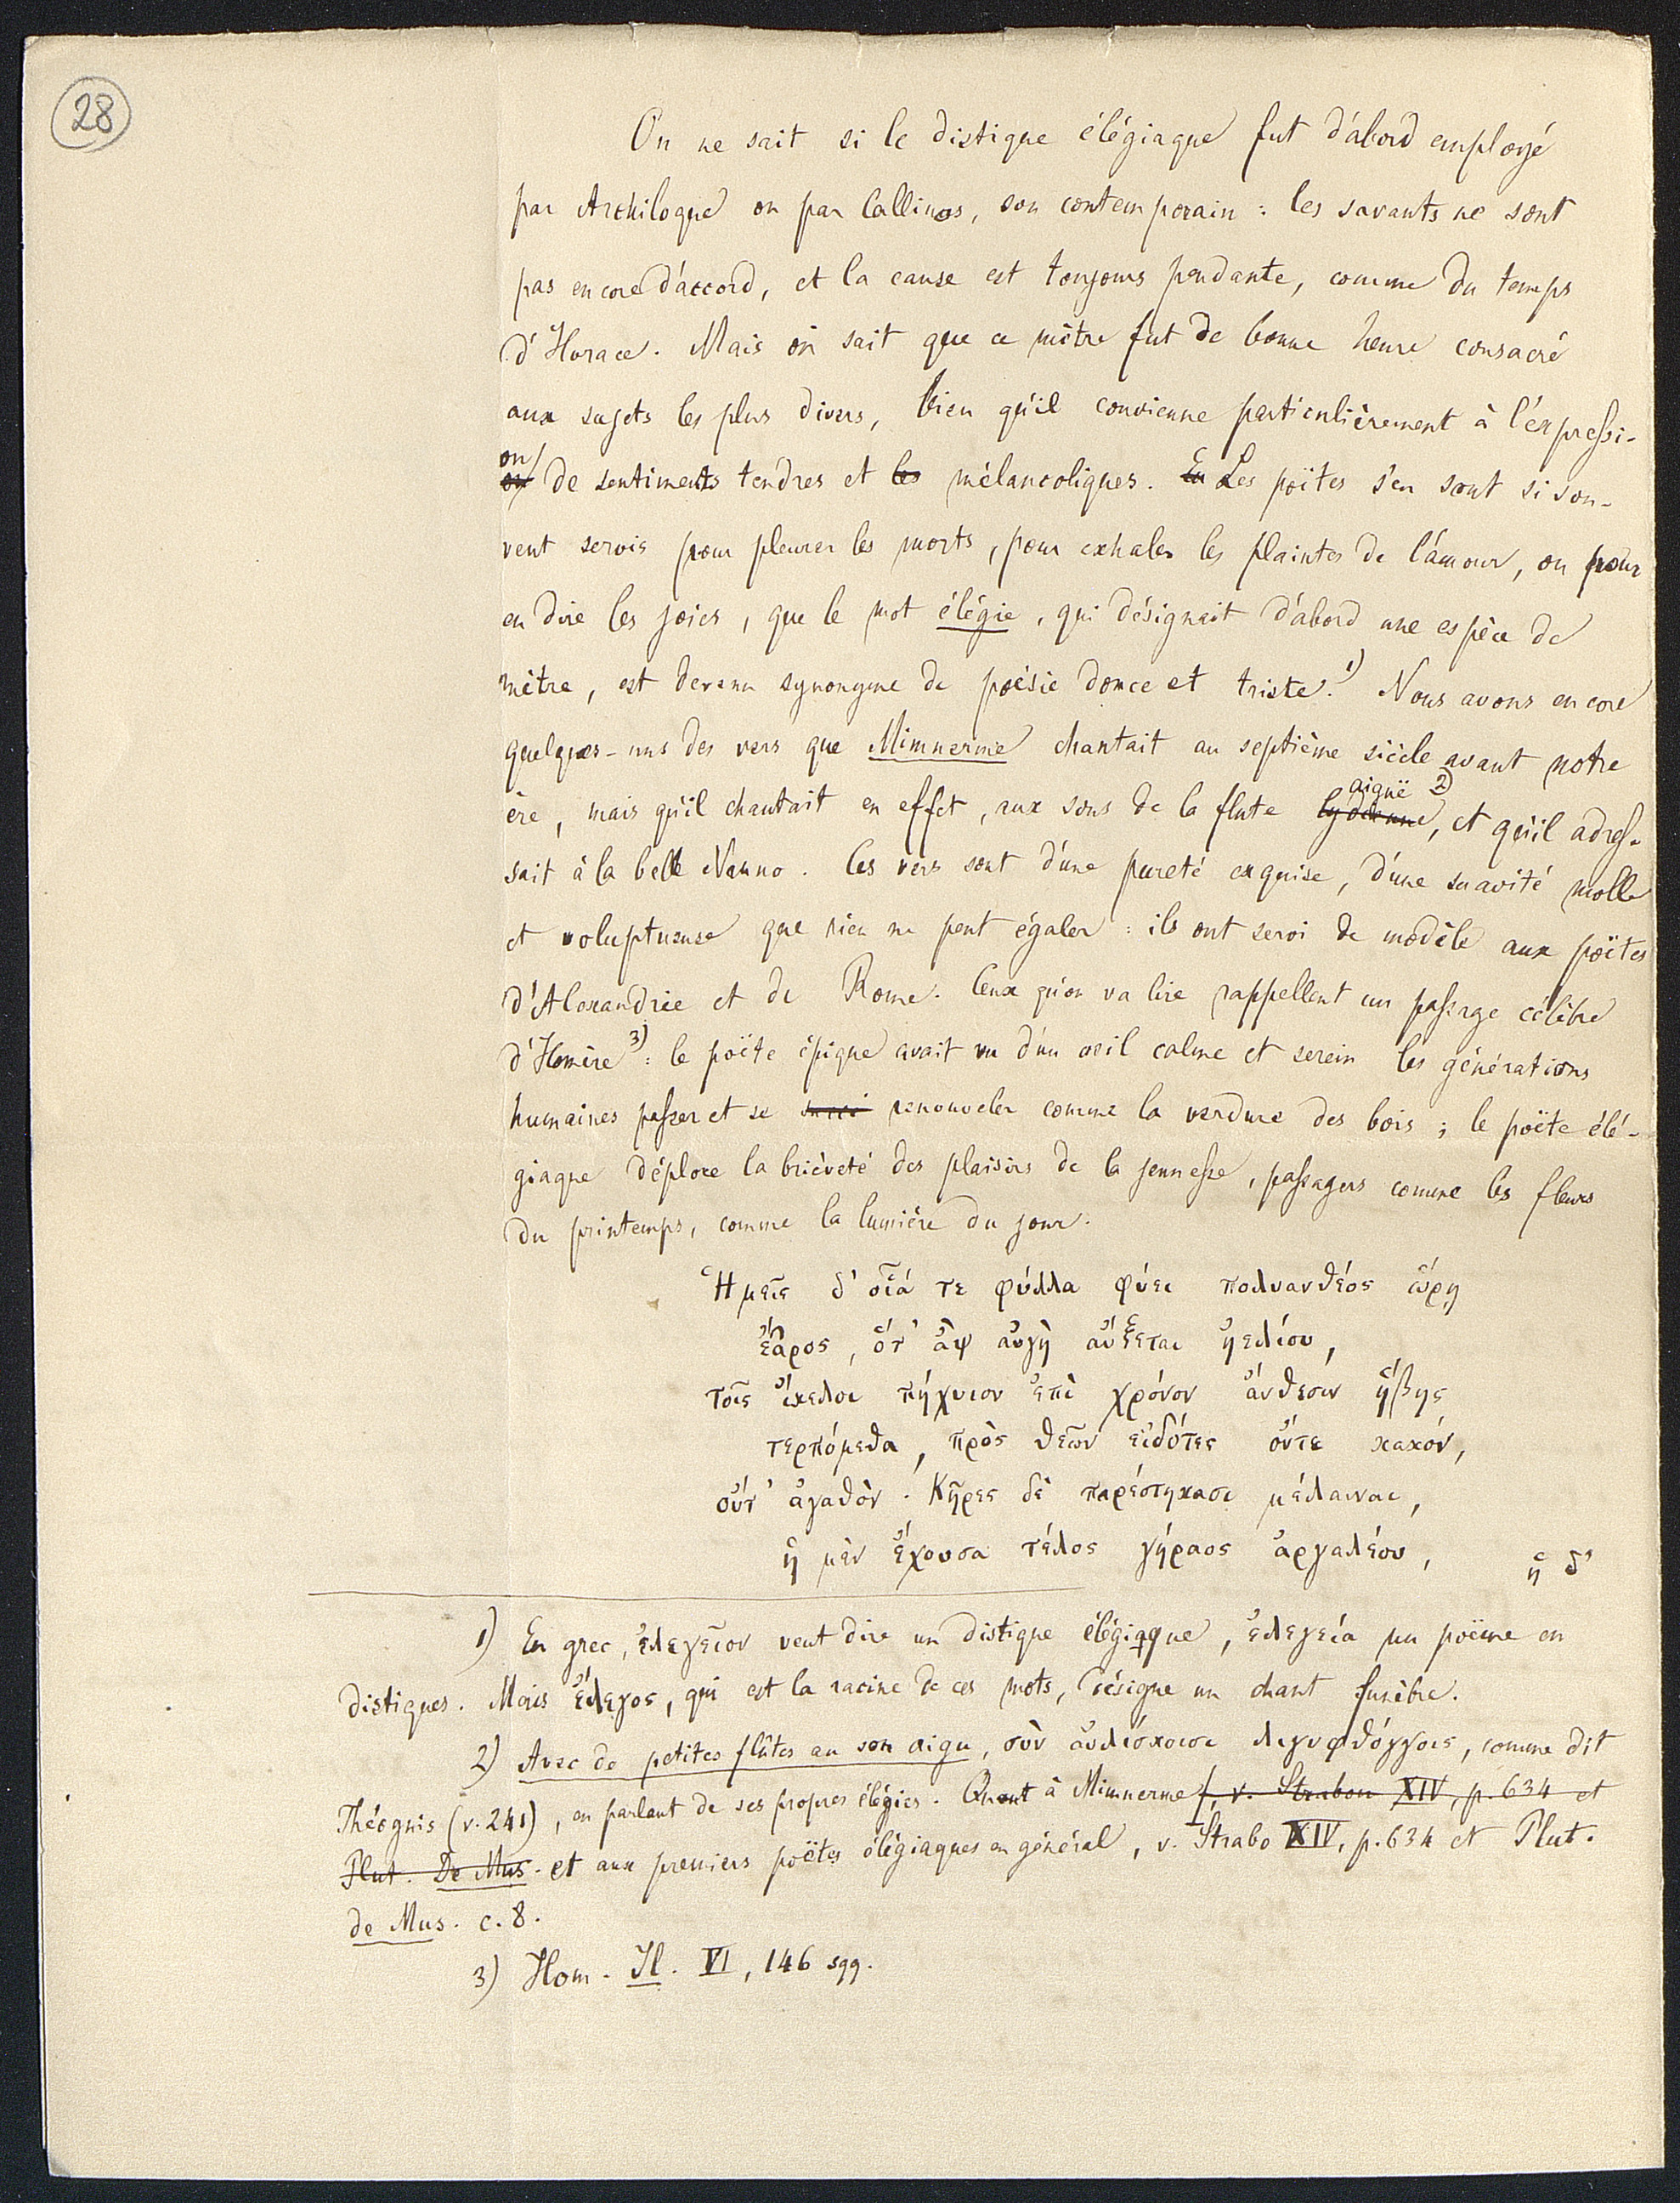 28
On ne sait si le distique élégiaque fut d'abord employé
par Archiloque ou par Callinos, son contemporain : les savants ne sont
pas encore d'accord, et la cause est toujours pendante, comme du temps
d'Horace. Mais on sait que ce mètre fut de bonne heure consacré
aux sujets les plus divers, bien qu'il convienne particulièrement à l'expressi-
on de sentiments tendres et les mélancoliques. En Les poëtes s'en sont si sou-
vent servis pour pleurer les morts, pour exhaler les plaintes de l'amour, ou pour
en dire les joies, que le mot élégie, qui désignait d'abord une espèce de
mètre, est devenu synonyme de poésie douce et triste.1) Nous avons encore
quelques-uns des vers que Mimnerme chantait au septième siècle avant notre
ère, mais qu'il chantait en effet, aux sons de la flute lydienne aiguë 2), et qu'il adres-
sait à la belle Nanno. Ces vers sont d'une pureté exquise, d'une suavité molle
et voluptueuse que rien ne peut égaler : ils ont servi de modèle aux poëtes
d'Alexandrie et de Rome. Ceux qu'on va lire rappellent un passage célèbre
d'Homère 3) : le poëte épique avait vu d'un œil calme et serein les générations
humaines passer et se succé renouveler comme la verdure des bois ; le poëte élé-
giaque déplore la brièveté des plaisirs de la jeunesse, passagers comme les fleurs
du printemps, comme la lumière du jour.
Ἡμεῖς δ' οἷά τε φύλλα φύει πολυανθέος ὥρη
ἔαρος, ὅτ' ἂψ αὐγὴ αὔξεται ἠελίου,
τοῖς ἴκελοι πήχυιον ἐπὶ χρόνον ἄνθεσιν ἥβης
τερπόμεθα, πρὸς θεῶν εἰδότες οὔτε κακόν,
οὔτ' ἀγαθὸν. Κῆρες δὲ παρέστηκασι μέλαιναι,
ἡ μὲν ἔχουσα τέλος γήραος ἀργαλέου,
ἡ δ'
1) En grec, ἐλεγεῖον veut dire un distique élégiaque, ἐλεγεία un poëme en
distiques. Mais ἔλεγος, qui est la racine de ces mots, désigne un chant funèbre.
2) Avec de petites flûtes au son aigu, σὺν αὐλίσκοισι λιγυφθόγγοις, comme dit
Théognis (v. 241), en parlant de ses propres élégies. Quant à Mimnerme, v. Strabon XIV, p. 634 et
Plut. De Mus. et aux premiers poëtes élégiaques en général, v. Strabo XIV, p. 634 et Plut.
de Mus. c. 8.
3) Hom. Il. VI, 146 sqq.